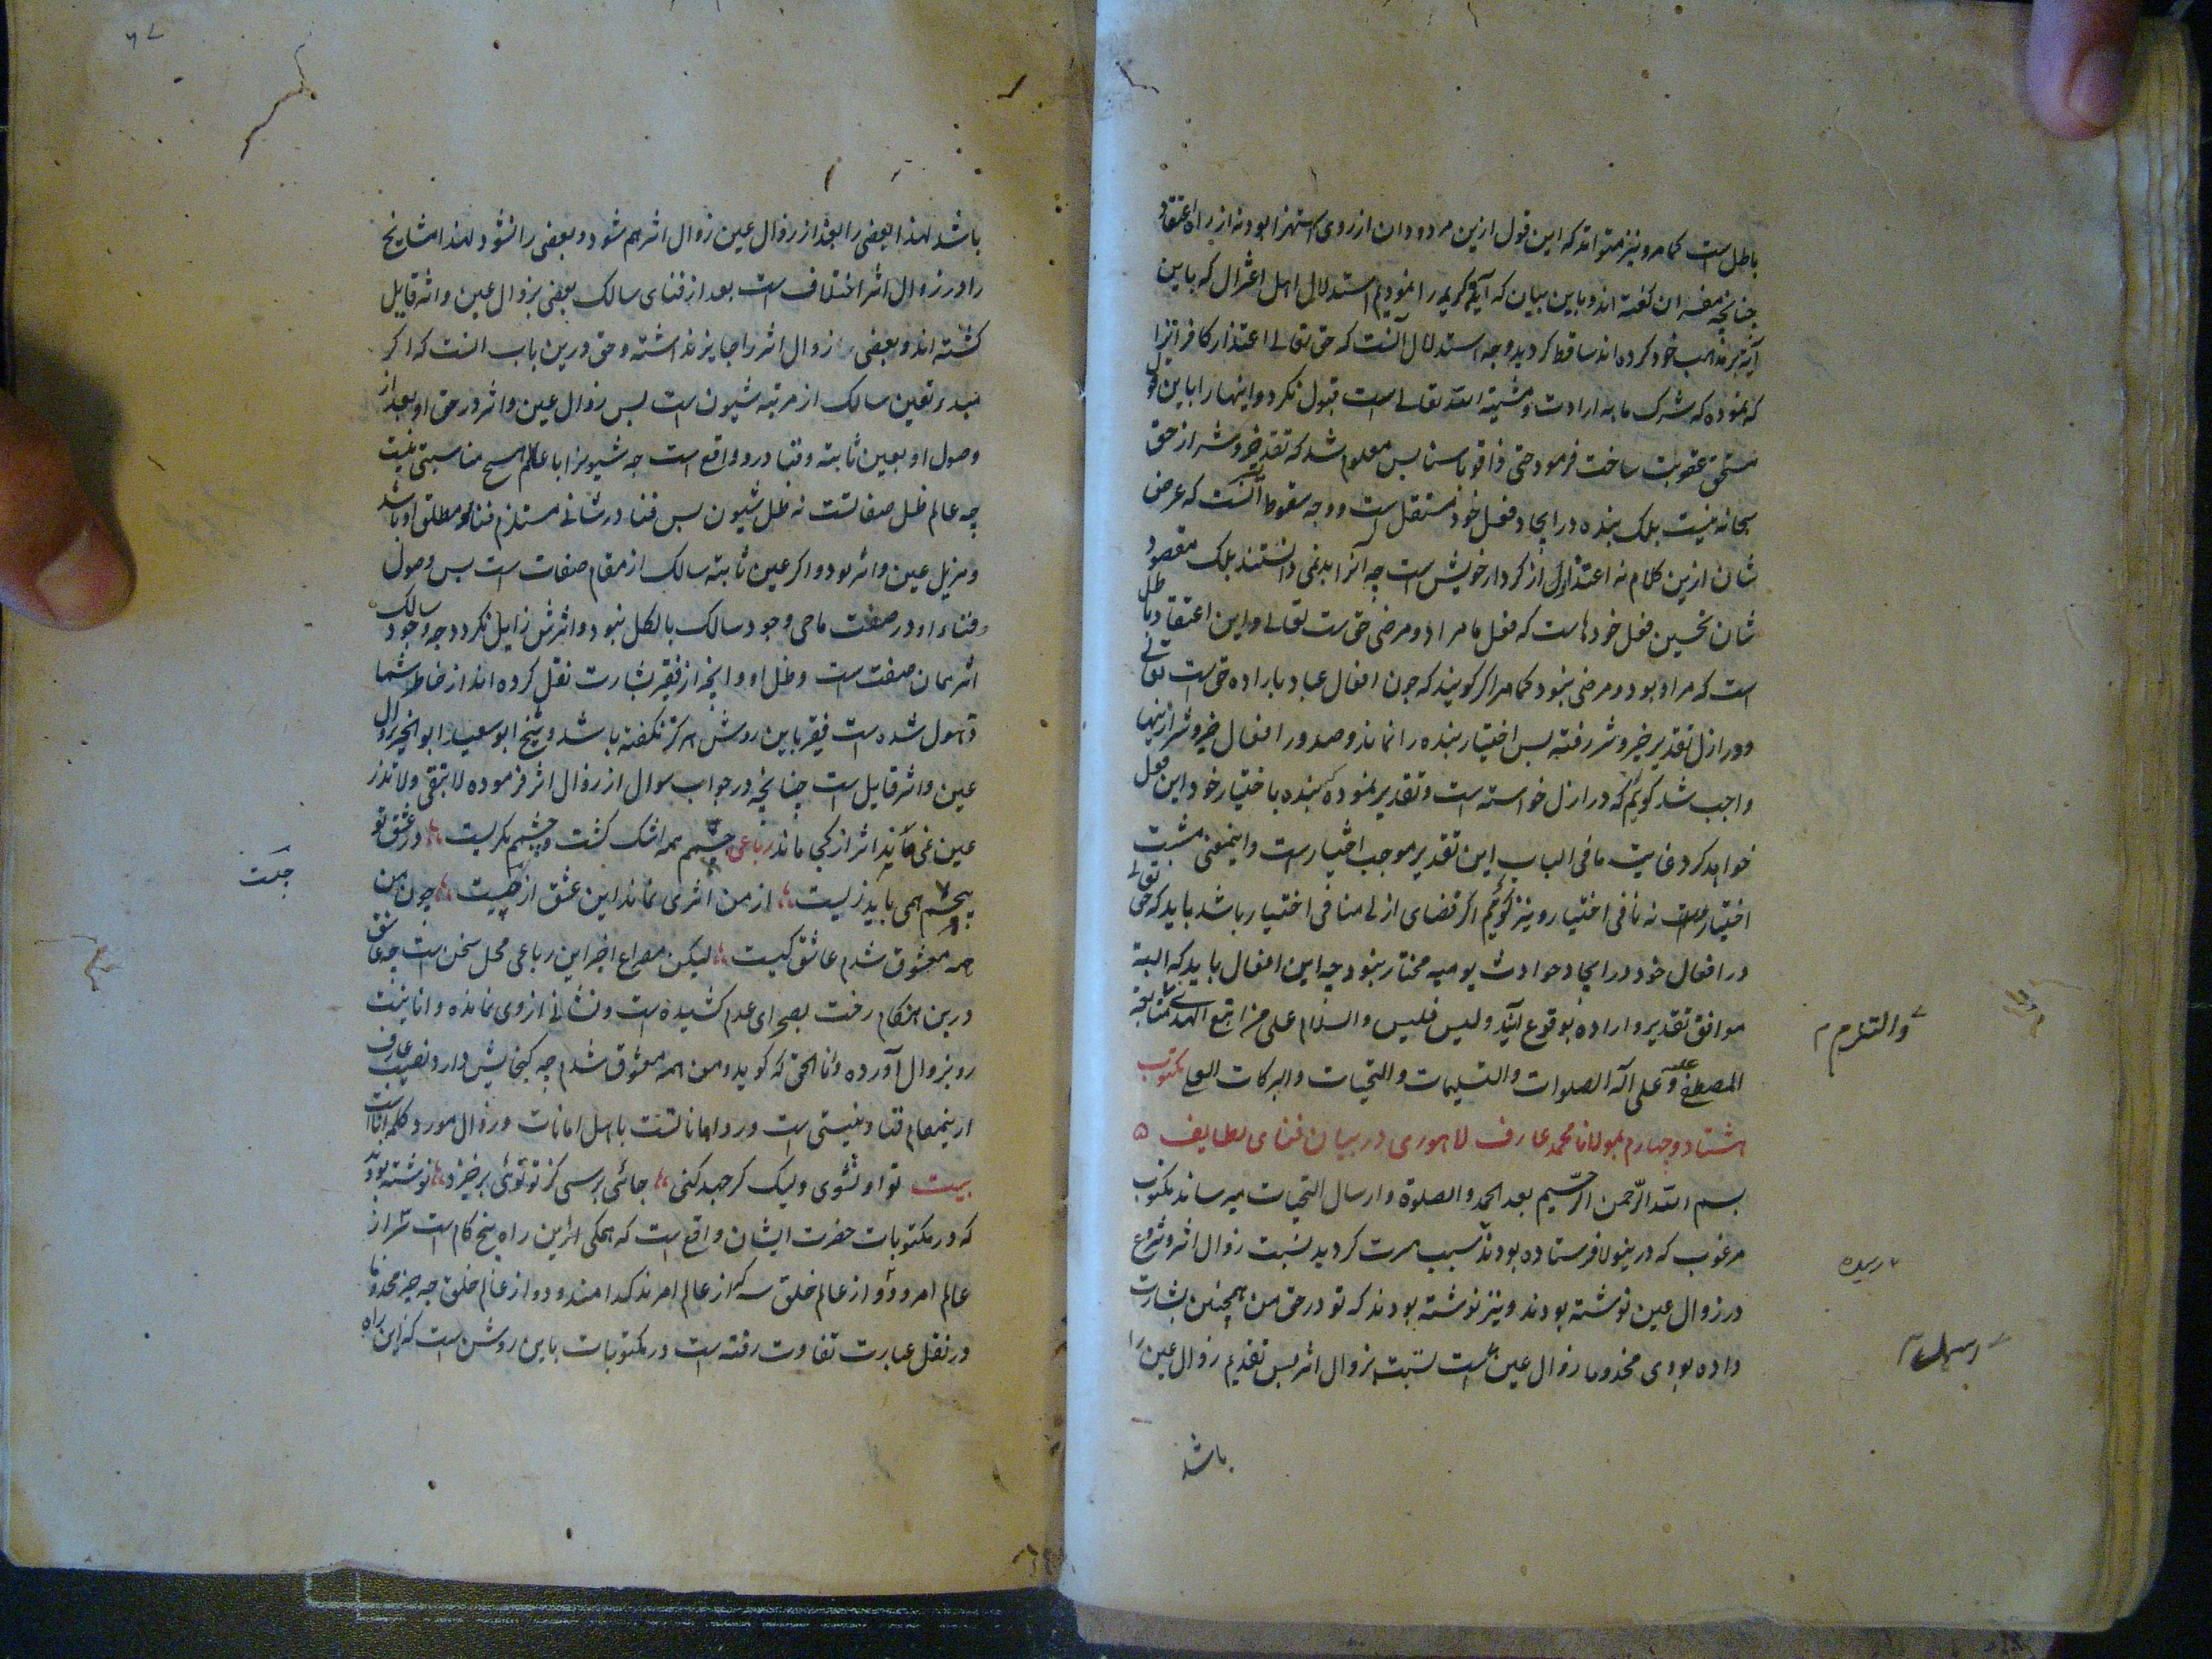 باطل است کما مر و نیز میتواند که این قول ازین مردودان از روی استهزا بود نه از راه اعتقاد
چنانچه مفسران گفته اند و باین بیان که آیه کریمه را نمودیم استدلال اهل اعتزال که باین
آیة بر مذهب خود کرده اند ساقط گردید وجه استدلال آنست که حق تعالی اعتذار کافرانرا
که نموده که شرک ما به ارادت و مشیة الله تعالی است قبول نکرد و اینها را باین قول
مستحق عقوبت ساخت فرمود حتی ذاقوا باسنا پس معلوم شد که تقدیر خیر و شر از حق
سبحانه نیست بلک بنده در ایجاد فعل خود مستقل است و وجه سقوط آنست که غرض
شان ازین کلام نه اعتذار از کردار خویش است چه آنرا بد نمی دانستند بلک مقصود
شان تحسین فعل خودهاست که فعل ما مراد و مرضی حق ست تعالی و این اعتقاد باطل
است که مراد بود و مرضی نبود کما مر اگر گویند که چون افعال عباد باراده حق است تعالی
و در ازل تقدیر خیر و شر رفته پس اختیار بنده را نماند و صدور افعال خیر و شر ازینها
واجب شد گویم که در ازل خواسته است و تقدیر نموده که بنده باختیار خود این فعل
خواهد کرد غایت ما فی الباب این تقدیر موجب اختیار ست و اینمعنی مثبت
اختیار است نه نافی اختیار و نیز گوئیم اگر قضای ازلی منافی اختیار باشد باید که حق تعالی
در افعال خود در ایجاد حوادث یومیه مختار نبود چه این افعال باید که البته
موافق تقدیر و اراده بوقوع آیند و لیس فلیس والسلام علی من اتبع الهدی متابعة
والتزم
المصطفی علیه و علی آله الصلوات والتسلیمات والتحیات والبرکات العلی مکتوب
هشتاد و چهارم بمولانا محمد عارف لاهوری در بیان فنای لطایف ۵
بسم الله الرحمن الرحیم بعد الحمد والصلوة و ارسال التحیات میرساند مکتوب
مرغوب که درینولا فرستاده بودند سبب مسرت گردید نسبت زوال اثر و شروع
رسیده
در زوال عین نوشته بودند و نیز نوشته بودند که تو در حق من همچنین بشارت
داده بودی مخدوما زوال عین است نسبت بزوال اثر پس تقدیم زوال عین را
باشد
۶۷
باشد لهذا بعضی را بعد از زوال عین زوال اثر هم شود و بعضی را نشود لهذا مشایخ
را در زوال اثر اختلاف است بعد از فنای سالک بعضی بزوال عین و اثر قایل
گشته اند و بعضی زوال اثر را جایز نداشته و حق درین باب آنست که اگر
مبدء تعین سالک از مرتبه شیون است پس زوال عین و اثر در حق او بعد از
وصول او بعین ثابته و فنا درو واقع است چه شیونرا با عالم هیچ مناسبتی نیست
چه عالم ظل صفاتست نه ظل شیون پس فنا در شانی مستلزم فناء مطلق او باشد
و مزیل عین و اثر بود و اگر عین ثابته سالک از مقام صفات است پس وصول
و فناء او در صفت ماحی وجود سالک بالکل نبود و اثرش زایل نگردد چه وجود سالک
اثر همان صفت است و ظل او و آنچه از فقیر بشارت نقل کرده اند از خاطر شما
ذهول شده است فقیر باین روش هرگز نگفته باشد و شیخ ابو سعید ابو الخیر بزوال
عین و اثر قایل است چنانچه در جواب سوال از زوال اثر فرموده لا تبقی و لا تذر
عین نمی ماند اثر از کجا ماند رباعی چشمم همه اشک گشت و چشمم بگریست در عشق تو
بیچشم همی باید زیست از من اثری نماند این عشق از چیست چون من
همه معشوق شدم عاشق کیست لیکن مصراع اخیر این رباعی محل سخن است چه عاشق
درین هنگام رخت بصحرای عدم کشیده است و نشانی از وی نمانده و انانیت
رو بزوال آورده و انا الحق که گوید و من همه معشوق شدم چه گنجایش دارد نصیب عارف
ازینمقام فنا و نیستی است و رد امانتست باهل امانات و زوال مورد کلمه انا است
بیت تو او نشوی ولیک گر جهد کنی جائی برسی کز تو توئی برخیزد نوشته بودند
که در مکتوبات حضرت ایشان واقع است که همگی این راه پنج کام است سه از
عالم امر و دو از عالم خلق سه که از عالم امرند کدامند و دو از عالم خلق چه چیز مخدوما
در نقل عبارت تفاوت رفته است در مکتوبات باین روشن است که این راه